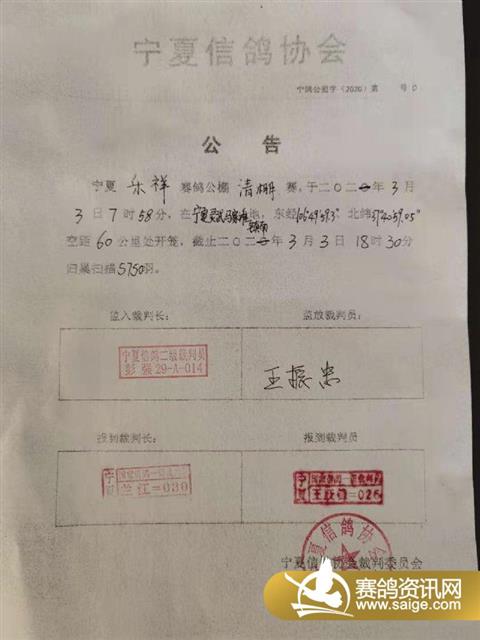 宁夏信鸽协会
宁鸽公棚字（2020）第 号0
公 告
宁夏 乐祥 赛鸽公棚 清棚 赛，于二〇二 年 3 月
3 日 7 时 58 分，在 地，东经106°49′59.3″ 北纬37°40′59.05″
空距 60 公里处开笼，截止二〇二 年 3 月 3 日 18 时 30 分
归巢扫描 5750 羽。
监入裁判长： 监放裁判员：
宁夏信鸽二级裁判员
彭 强 29-A-014
王振忠
报到裁判长： 报到裁判员
宁夏
兰江=030
宁夏
=026
宁夏信鸽协会
宁夏信鸽协会裁判委员会
赛鸽资讯网
www.saige.com